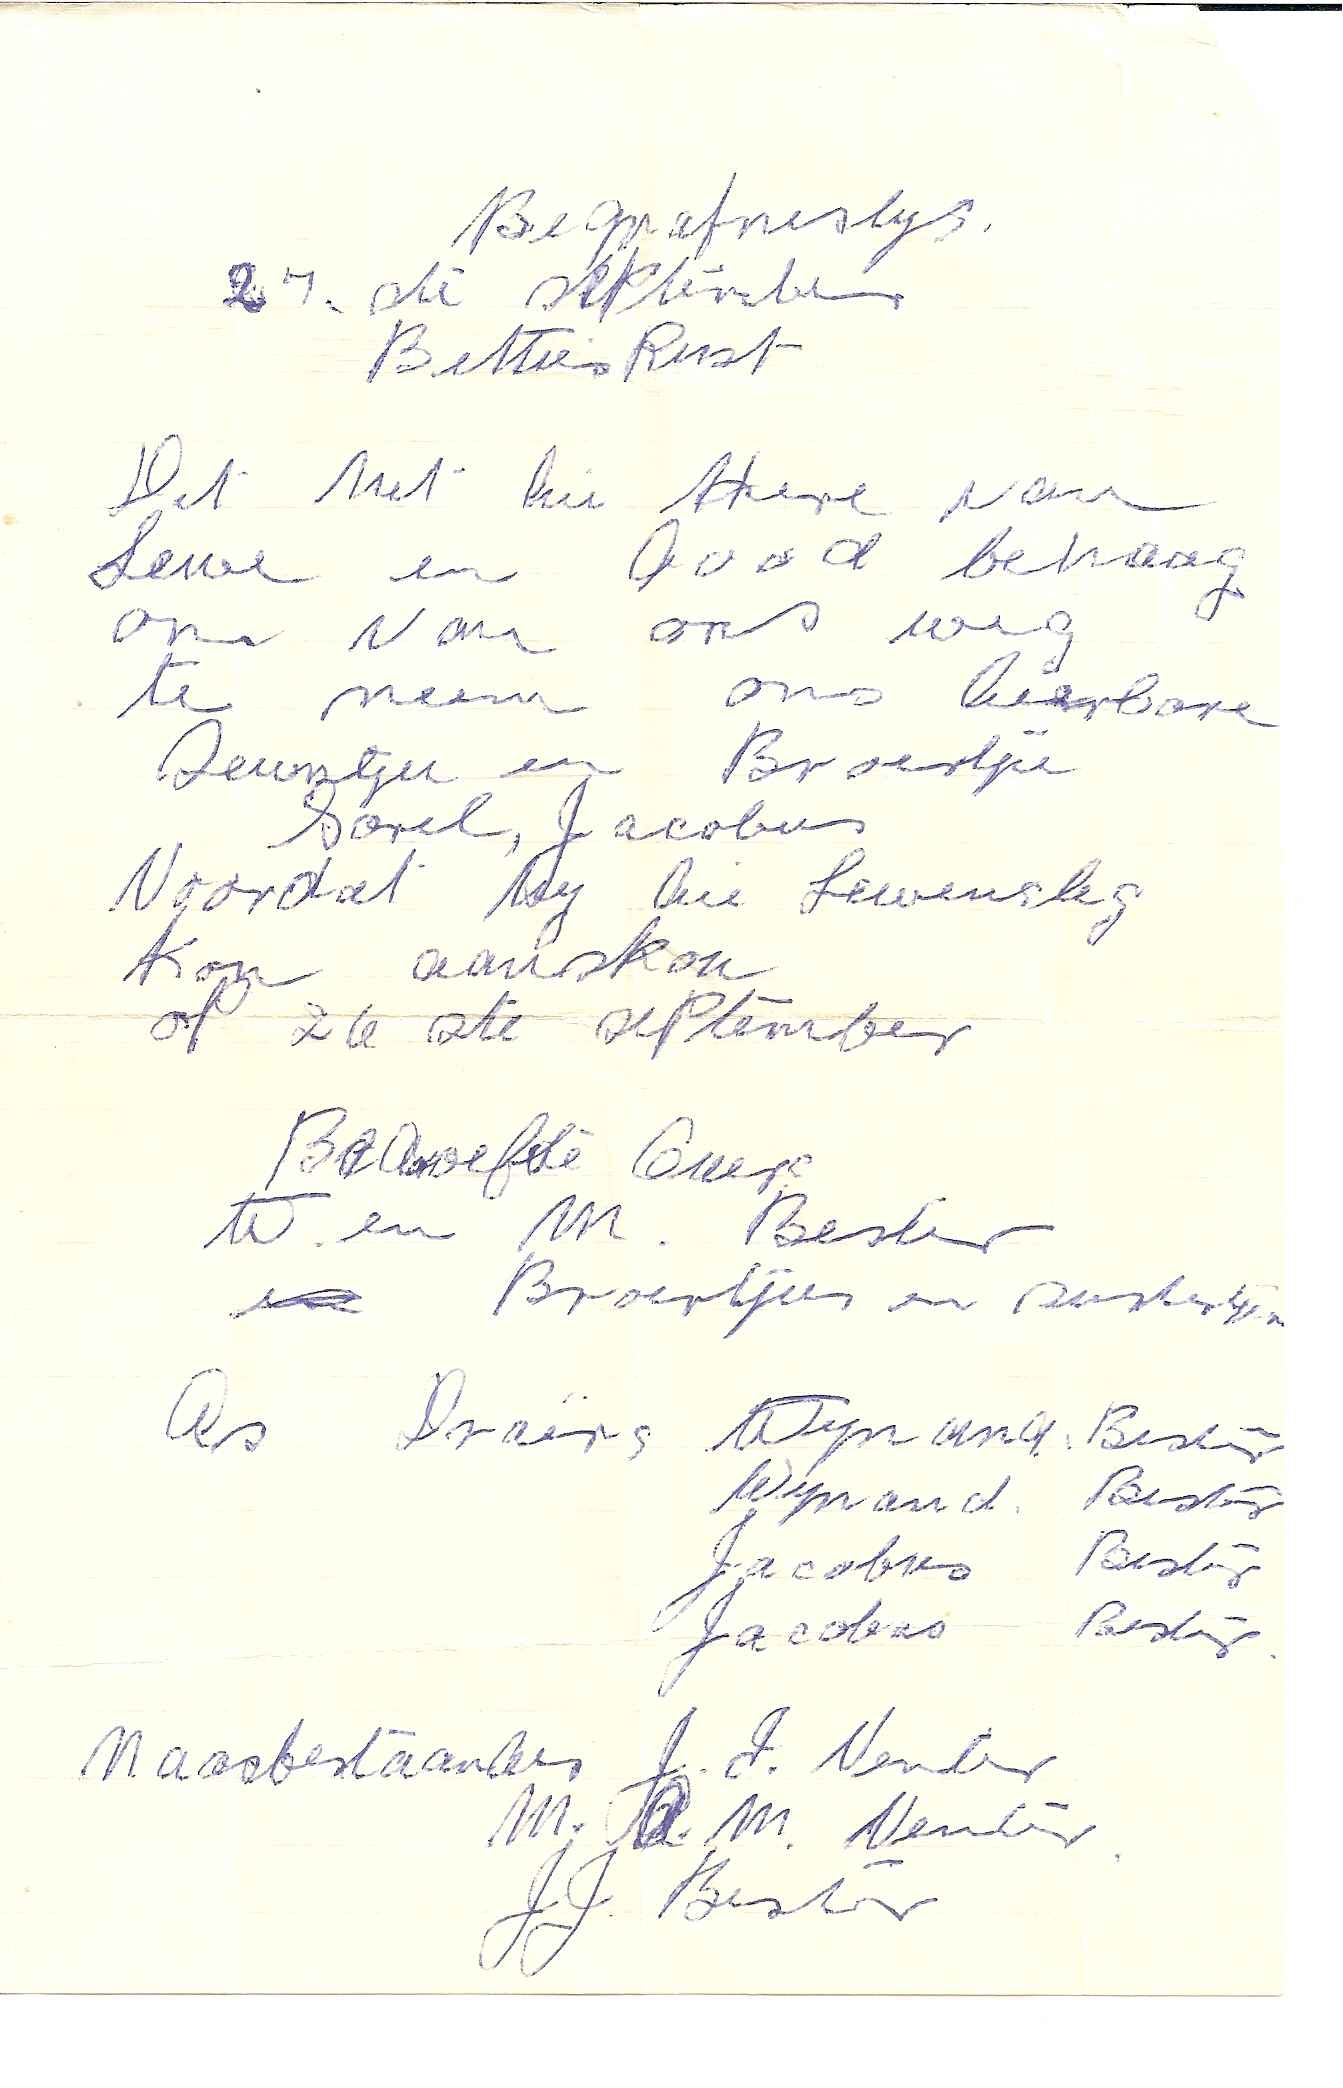 Begrafneslys.
27. ste september
Betties Rust
Dit het die Here van
Lewe en dood behaag
om van ons weg
te neem ons dierbare
Seuntjie en Broertjie
Sarel, Jacobus
Voordat hy die Lewenslig
kon aanskou
op 26 ste september
Bedroefde Ouers
W. en M. Bester
Broertjies en sustertjies
As Draërs Wynand. Bester
Wynand. Bester
Jacobus Bester
Jacobus Bester.
Naasbestaandes J. J. Venter
M. M. Venter.
J J. Bester